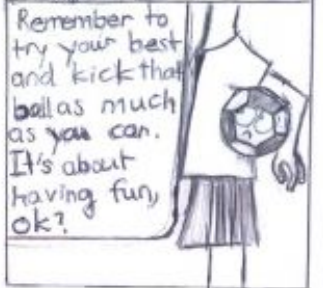 Remember to
try your best
and kick that
ball as much
as you can.
It's about
having fun,
ok?